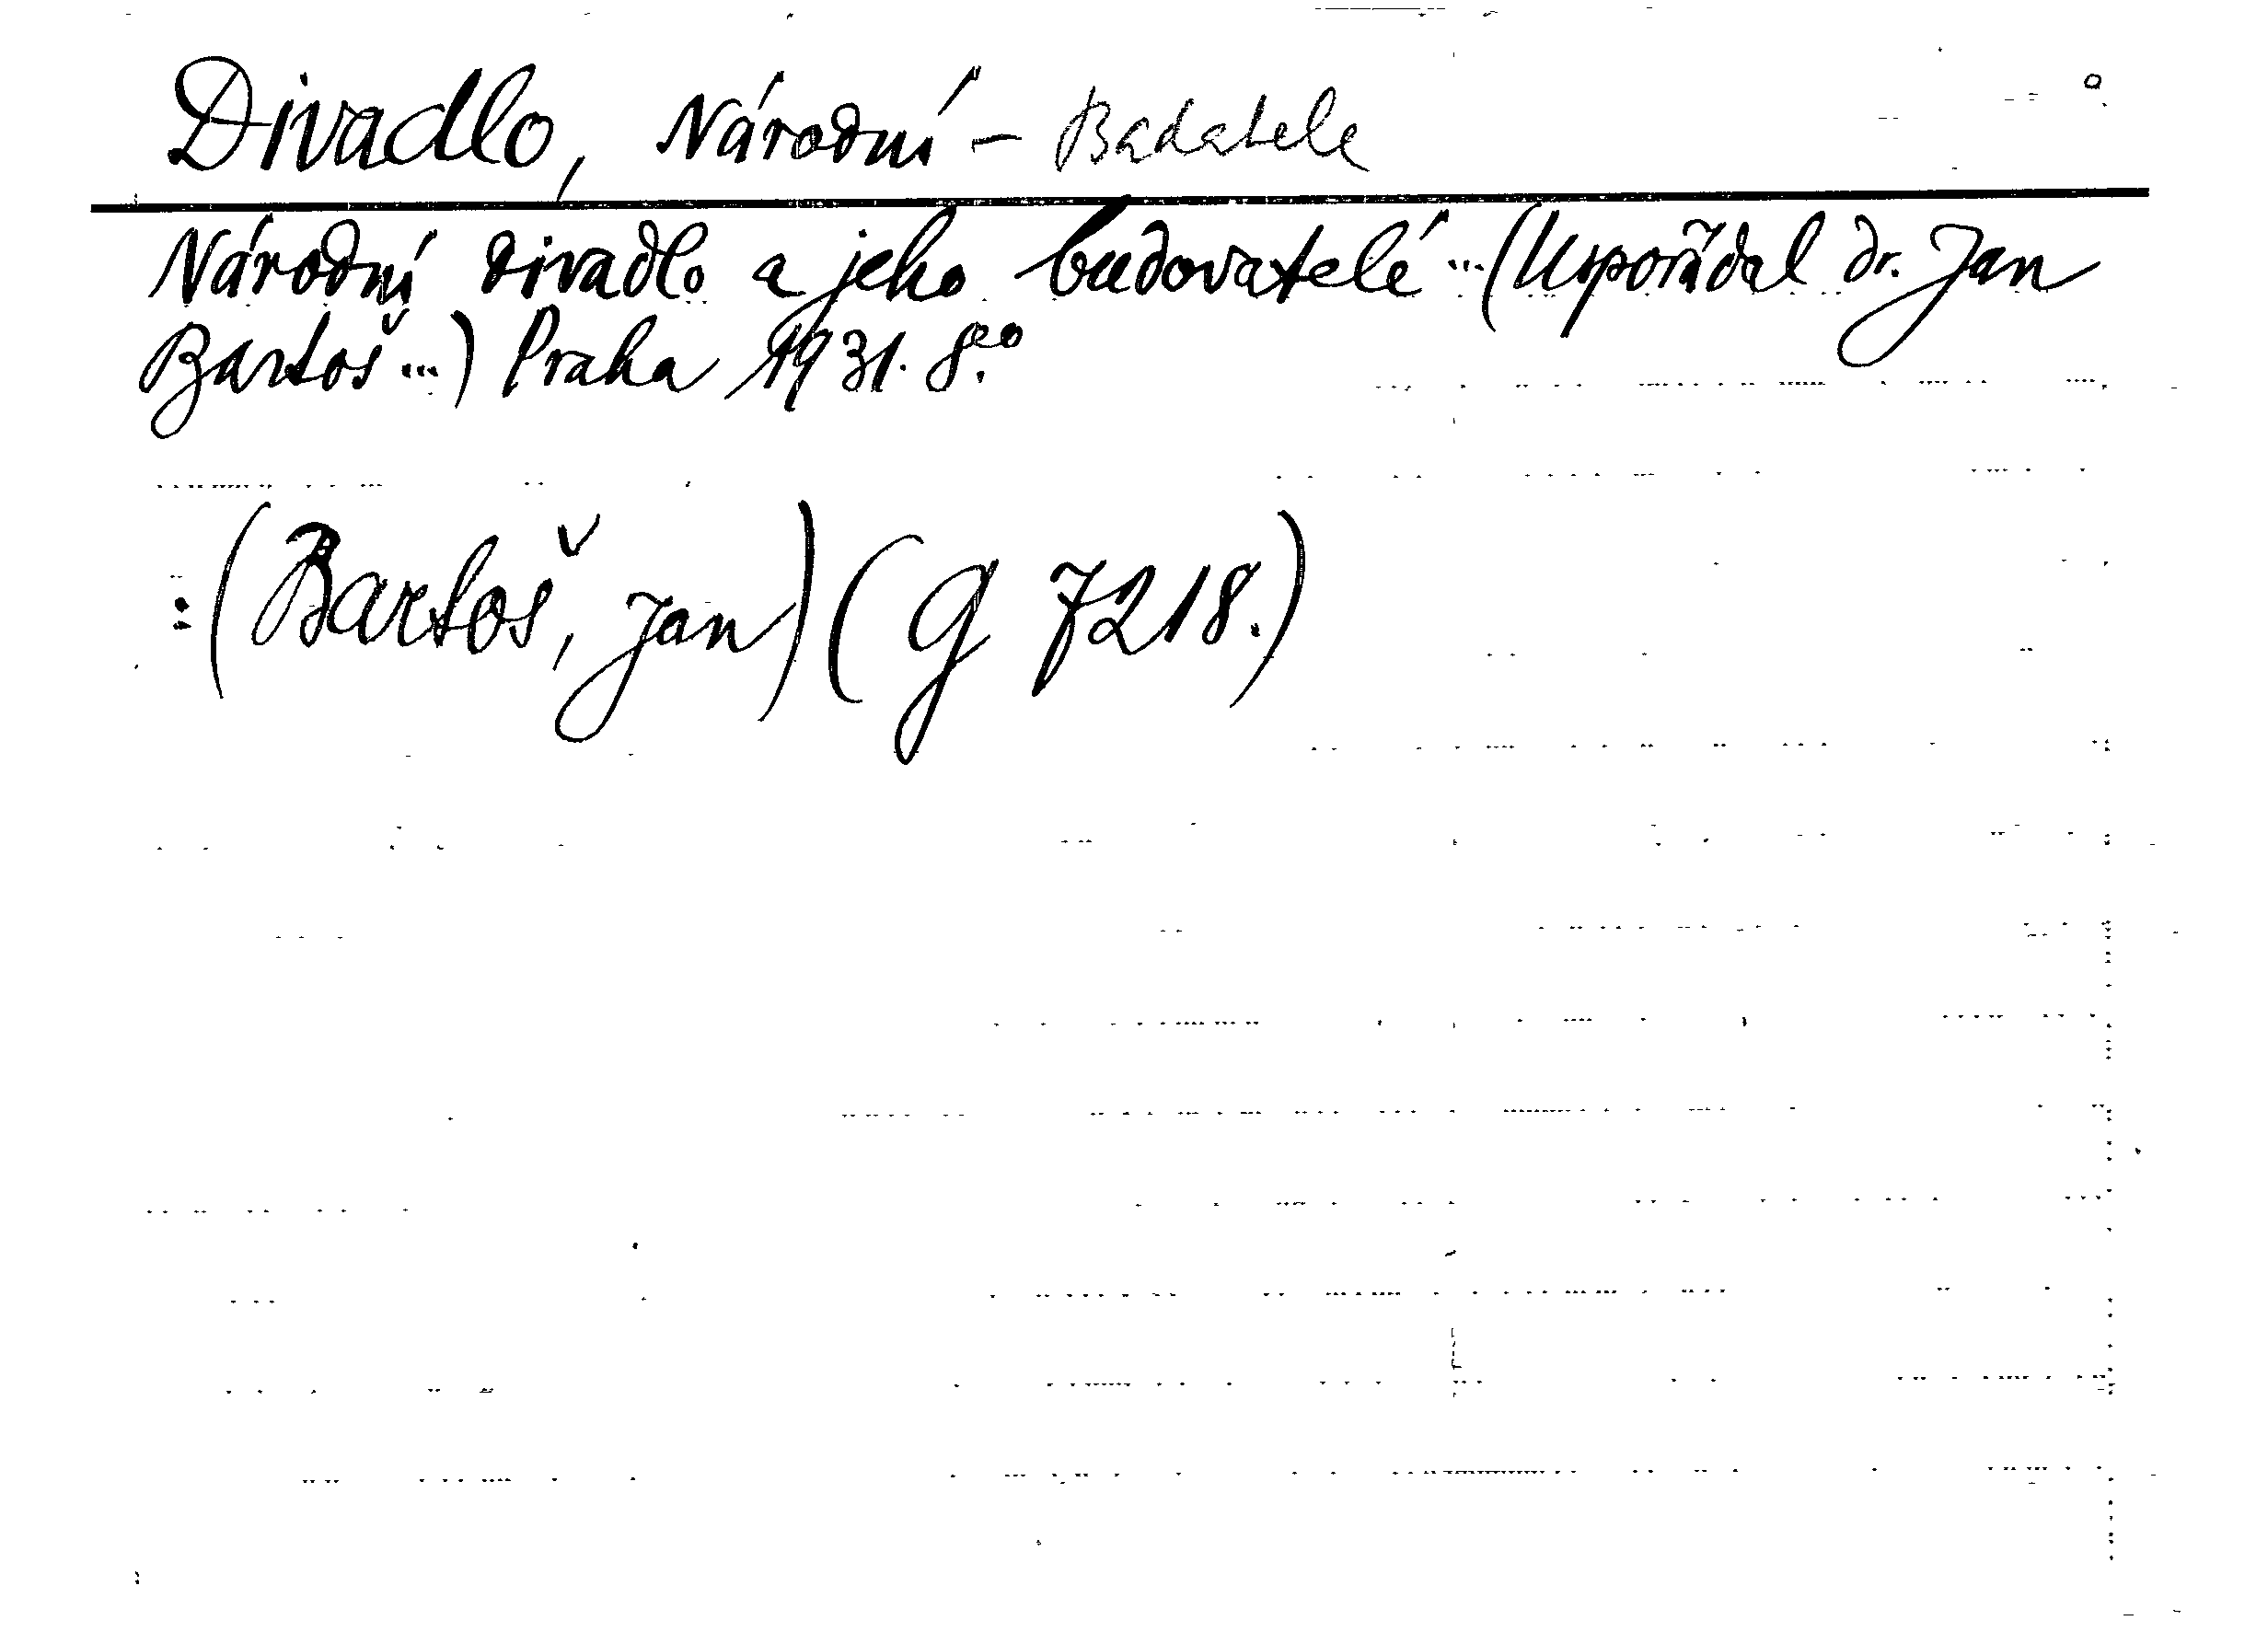 Divadlo, Národní – Badatele
Národní divadlo a jeho budovatelé ... (Uspořádal dr. Jan
Bartoš ...) Praha 1931. 8°.
: (Bartoš, Jan) (G 7218.)